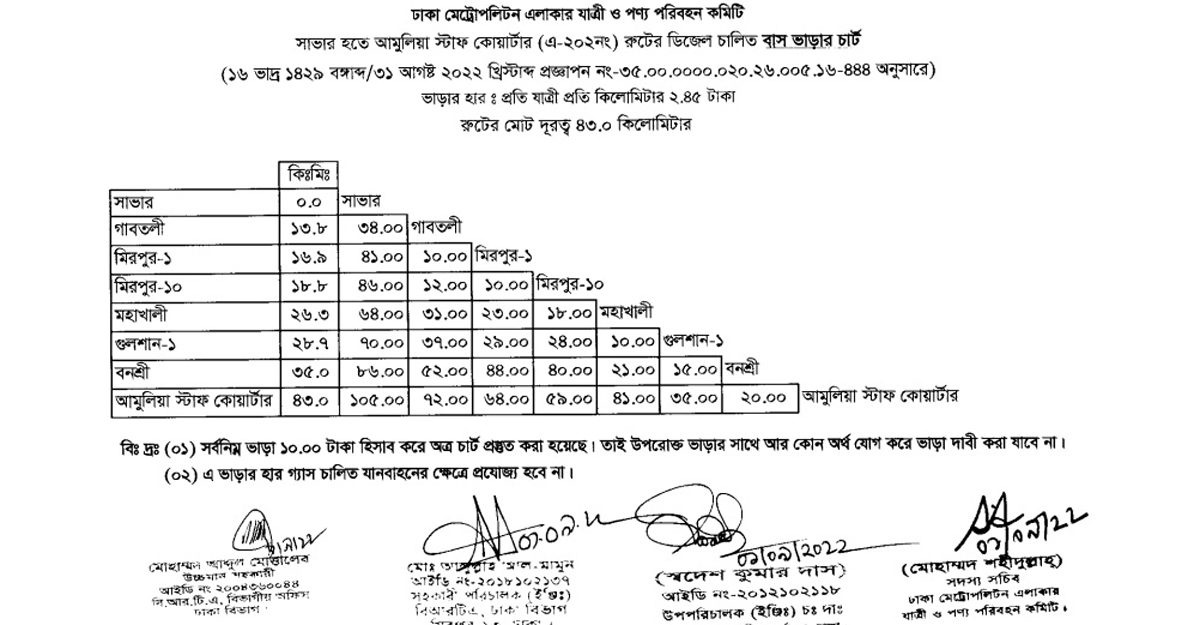 ঢাকা মেট্রোপলিটন এলাকার যাত্রী ও পণ্য পরিবহন কমিটি
সাভার হতে আমুলিয়া স্টাফ কোয়ার্টার (এ-২০২নং) রুটের ডিজেল চালিত বাস ভাড়ার চার্ট
(১৬ ভাদ্র ১৪২৯ বঙ্গাব্দ/৩১ আগষ্ট ২০২২ খ্রিস্টাব্দ প্রজ্ঞাপন নং-৩৫.০০.০০০০.০২০.২৬.০০৫.১৬-৪৪৪ অনুসারে)
ভাড়ার হার ঃ প্রতি যাত্রী প্রতি কিলোমিটার ২.৪৫ টাকা
রুটের মোট দূরত্ব ৪৩.০ কিলোমিটার
কিঃমিঃ
সাভার ০.০ সাভার
গাবতলী ১৩.৮ ৩৪.০০ গাবতলী
মিরপুর-১ ১৬.৯ ৪১.০০ ১০.০০ মিরপুর-১
মিরপুর-১০ ১৮.৮ ৪৬.০০ ১২.০০ ১০.০০ মিরপুর-১০
মহাখালী ২৬.৩ ৬৪.০০ ৩১.০০ ২৩.০০ ১৮.০০ মহাখালী
গুলশান-১ ২৮.৭ ৭০.০০ ৩৭.০০ ২৯.০০ ২৪.০০ ১০.০০ গুলশান-১
বনশ্রী ৩৫.০ ৮৬.০০ ৫২.০০ ৪৪.০০ ৪০.০০ ২১.০০ ১৫.০০ বনশ্রী
আমুলিয়া স্টাফ কোয়ার্টার ৪৩.০ ১০৫.০০ ৭২.০০ ৬৪.০০ ৫৯.০০ ৪১.০০ ৩৫.০০ ২০.০০ আমুলিয়া স্টাফ কোয়ার্টার
বিঃ দ্রঃ (০১) সর্বনিম্ন ভাড়া ১০.০০ টাকা হিসাব করে অত্র চার্ট প্রস্তুত করা হয়েছে। তাই উপরোক্ত ভাড়ার সাথে আর কোন অর্থ যোগ করে ভাড়া দাবী করা যাবে না।
(০২) এ ভাড়ার হার গ্যাস চালিত যানবাহনের ক্ষেত্রে প্রযোজ্য হবে না।
০১/০৯/2022
মোহাম্মদ আব্দুল মোত্তালেব
উচ্চমান সহকারী
আইডি নং ২০০৪৩৬০০৪৪
বি.আর.টি.এ, বিভাগীয় অফিস
ঢাকা বিভাগ।
আইডি নং-২০১৮১০২১৩৭
সহকারী পরিচালক (ইঞ্জিঃ)
বিআরটিএ, ঢাকা বিভাগ
(স্বদেশ কুমার দাস)
আইডি নং-২০১২১০২১১৮
উপপরিচালক (ইঞ্জিঃ) চঃ দাঃ
(মোহাম্মদ শহীদুল্লাহ)
সদস্য সচিব
ঢাকা মেট্রোপলিটন এলাকার
যাত্রী ও পণ্য পরিবহন কমিটি।